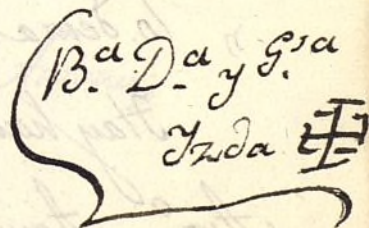 B.ª D.ª y G.sª
Izda